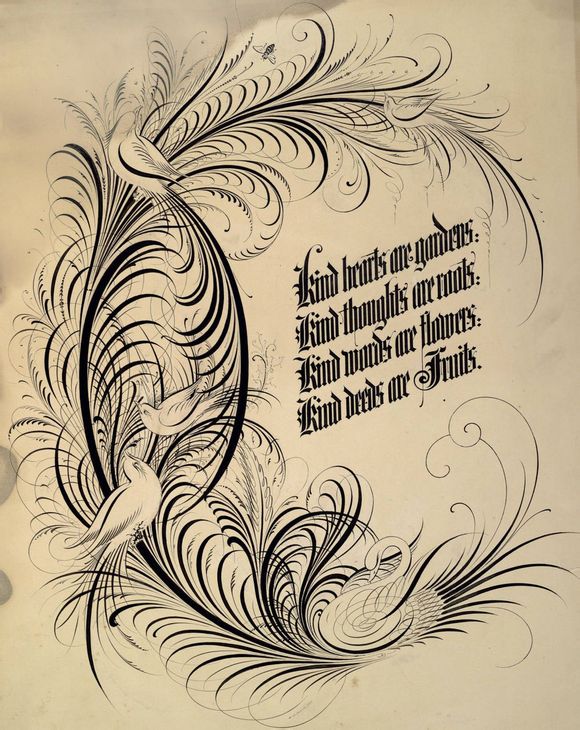 Kind hearts are gardens:
Kind thoughts are roots:
Kind words are flowers:
Kind deeds are Fruits.